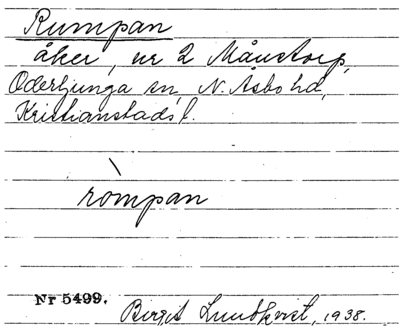 Rumpan
åker, nr 2 Månstorp,
Oderljunga sn, N. Åsbo hd,
Kristianstads l.
ròmpan
Nr 5499.
Birgit Lundkvist, 1938.